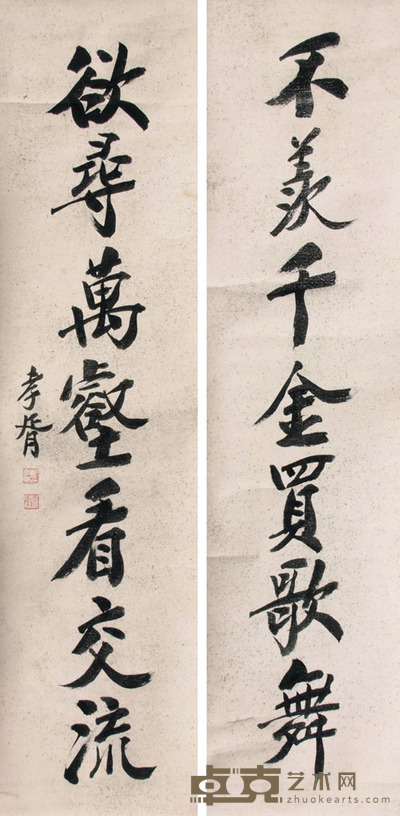 不羨千金買歌舞
欲尋萬壑看交流
孝胥
卓克艺术网
zhuokearts.com